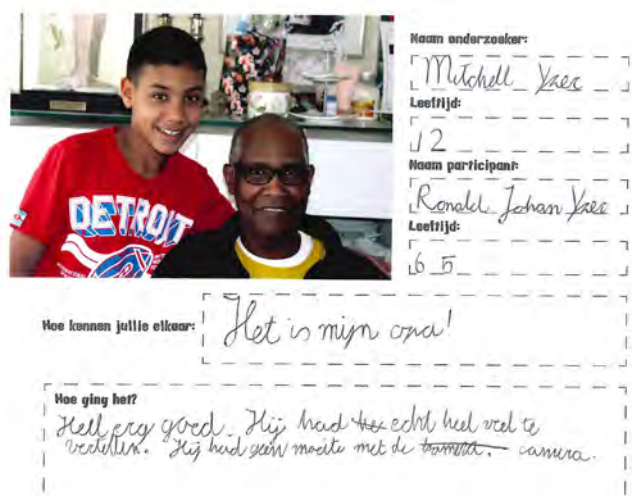 DETROIT
Naam onderzoeker:
Mitchell Yzer
Leeftijd:
12
Naam participant:
Ronald Johan Yzer
Leeftijd:
65
Hoe kennen jullie elkaar:
Het is mijn opa!
Hoe ging het?
Hell erg goed. Hij had echt heel veel te
vertellen. Hij had geen moeite met de camera. camera.